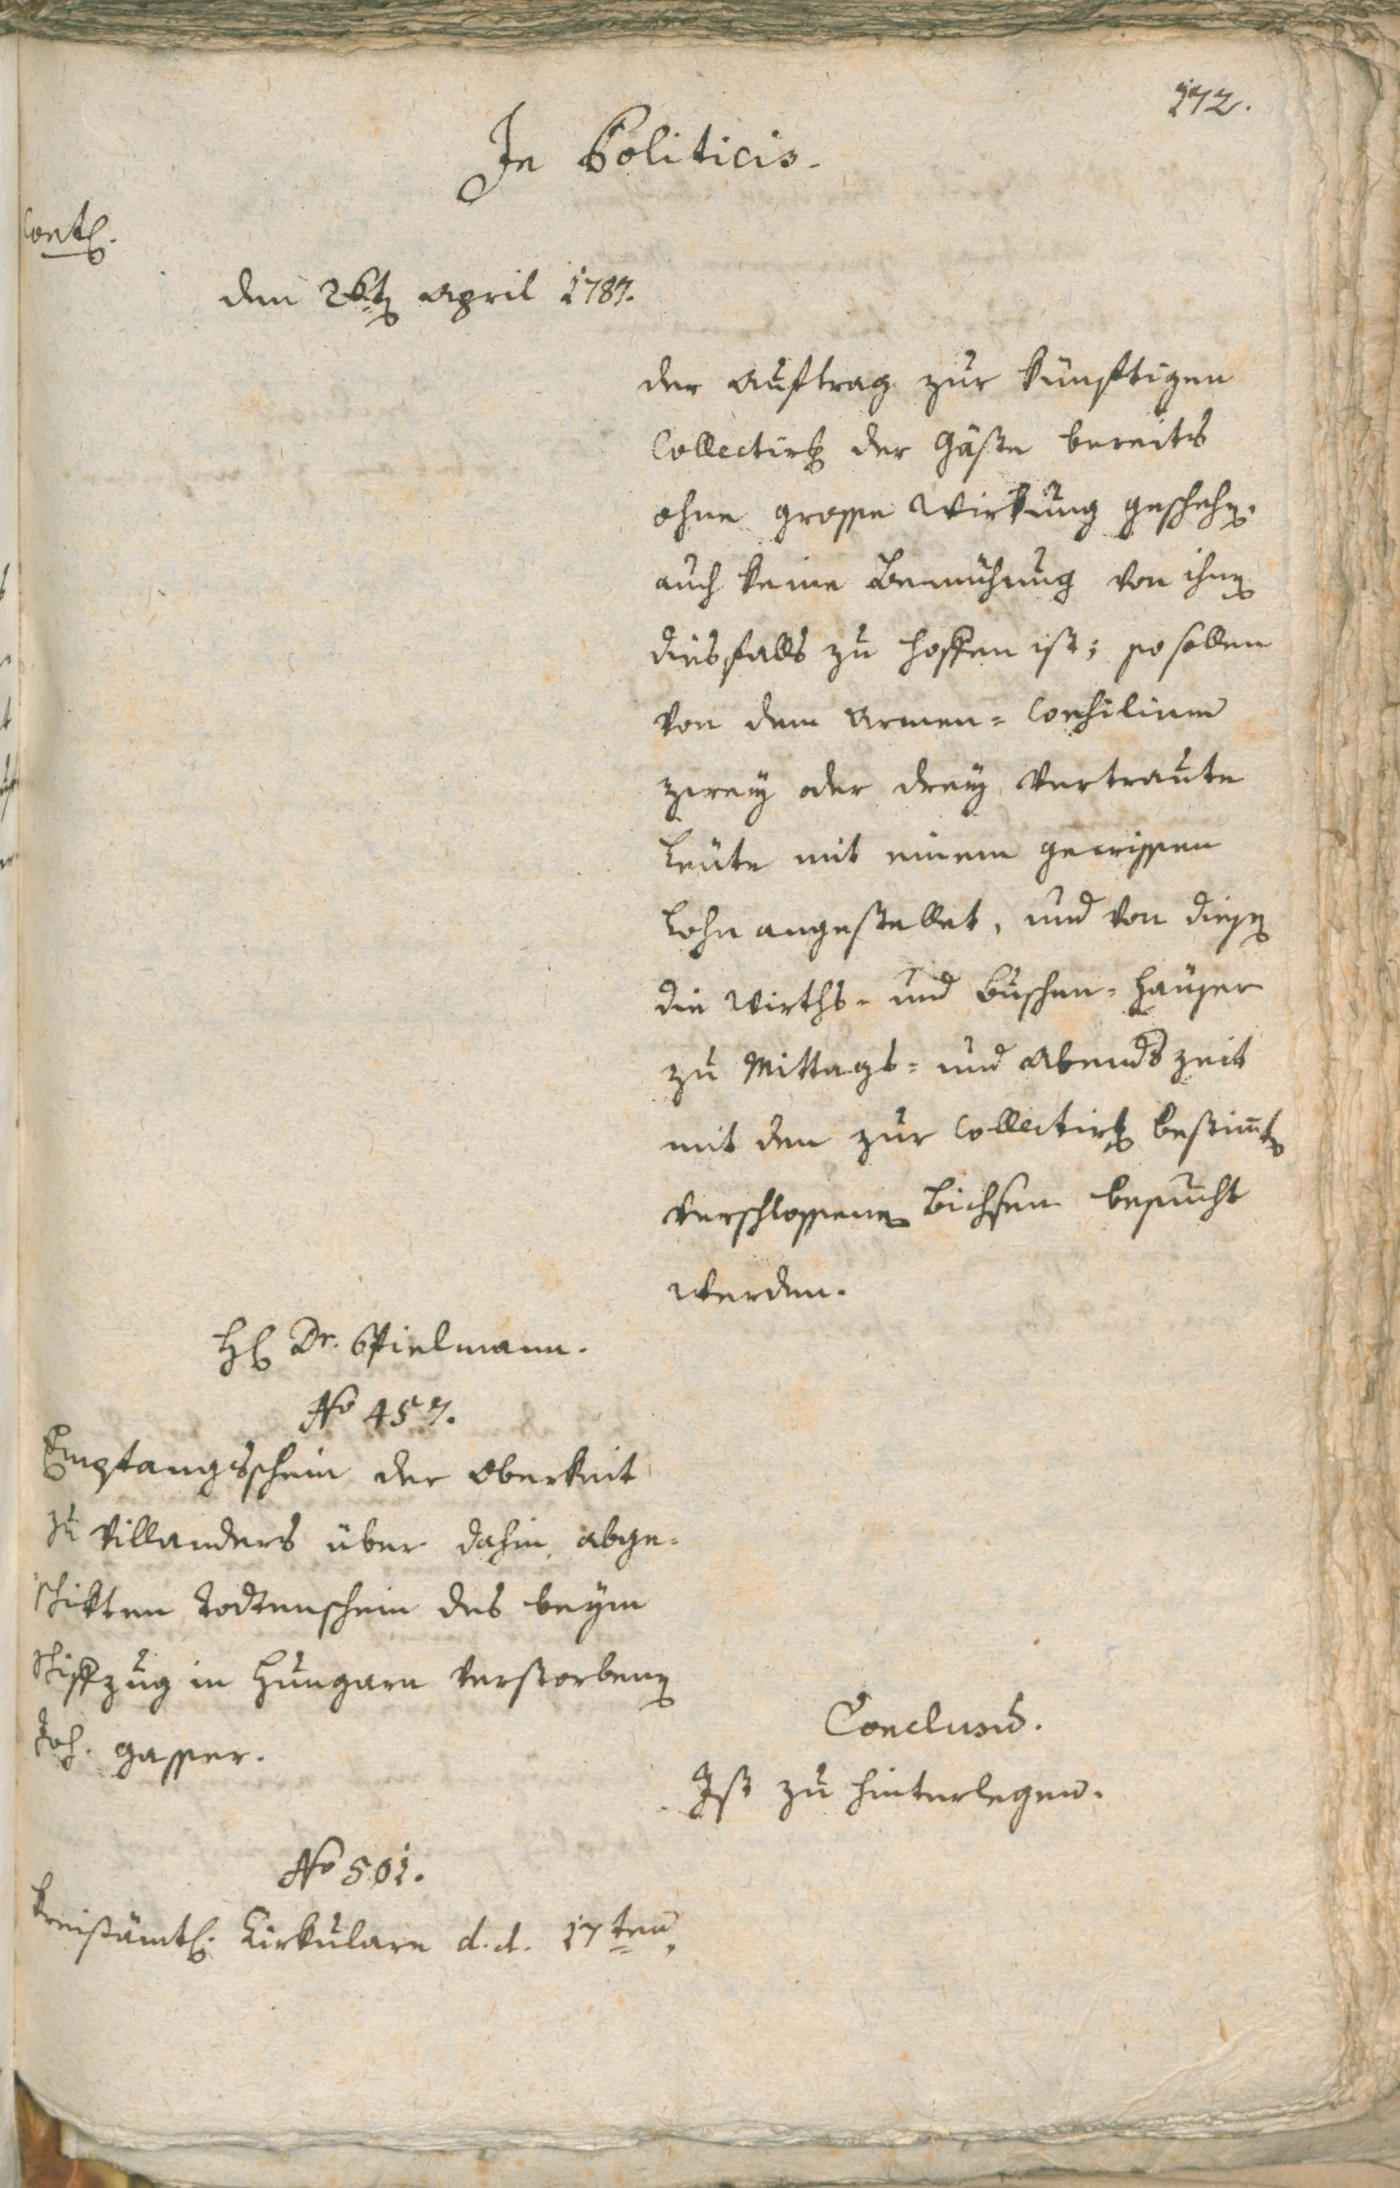 172.
In Politicis.
Cont.
den 26t April 1787.
der Auftrag zur künftigen
Collectirg der Gäste bereits
ohne grosse Wirkung geschehen.
auch keine Bemühung von ihnen
diesfalls zu hoffen ist; so sollen
von dem Armen-Consilium
zwey oder drey vertraute
Leüte mit einem gewissen
Lohn angestellet, und von diesen
die Wirths- und Buschen-Haüser
zu Mittags- und Abendszeit
mit den zur Collectirg bestim̄ten
verschlossenen Bichsen besucht
werden.
H. Dr. Spielmann.
No 457.
Empfangsschein der Oberkeit
zu Villanders über dahin abge-
schikten Todtenschein des beym
Schiffzug in Hungarn verstorbenen
Joh. Gasser.
Conclusū.
Ist zu hinterlegen.
No 501.
Kreisämtl. Zirkulare d.d. 17ten,